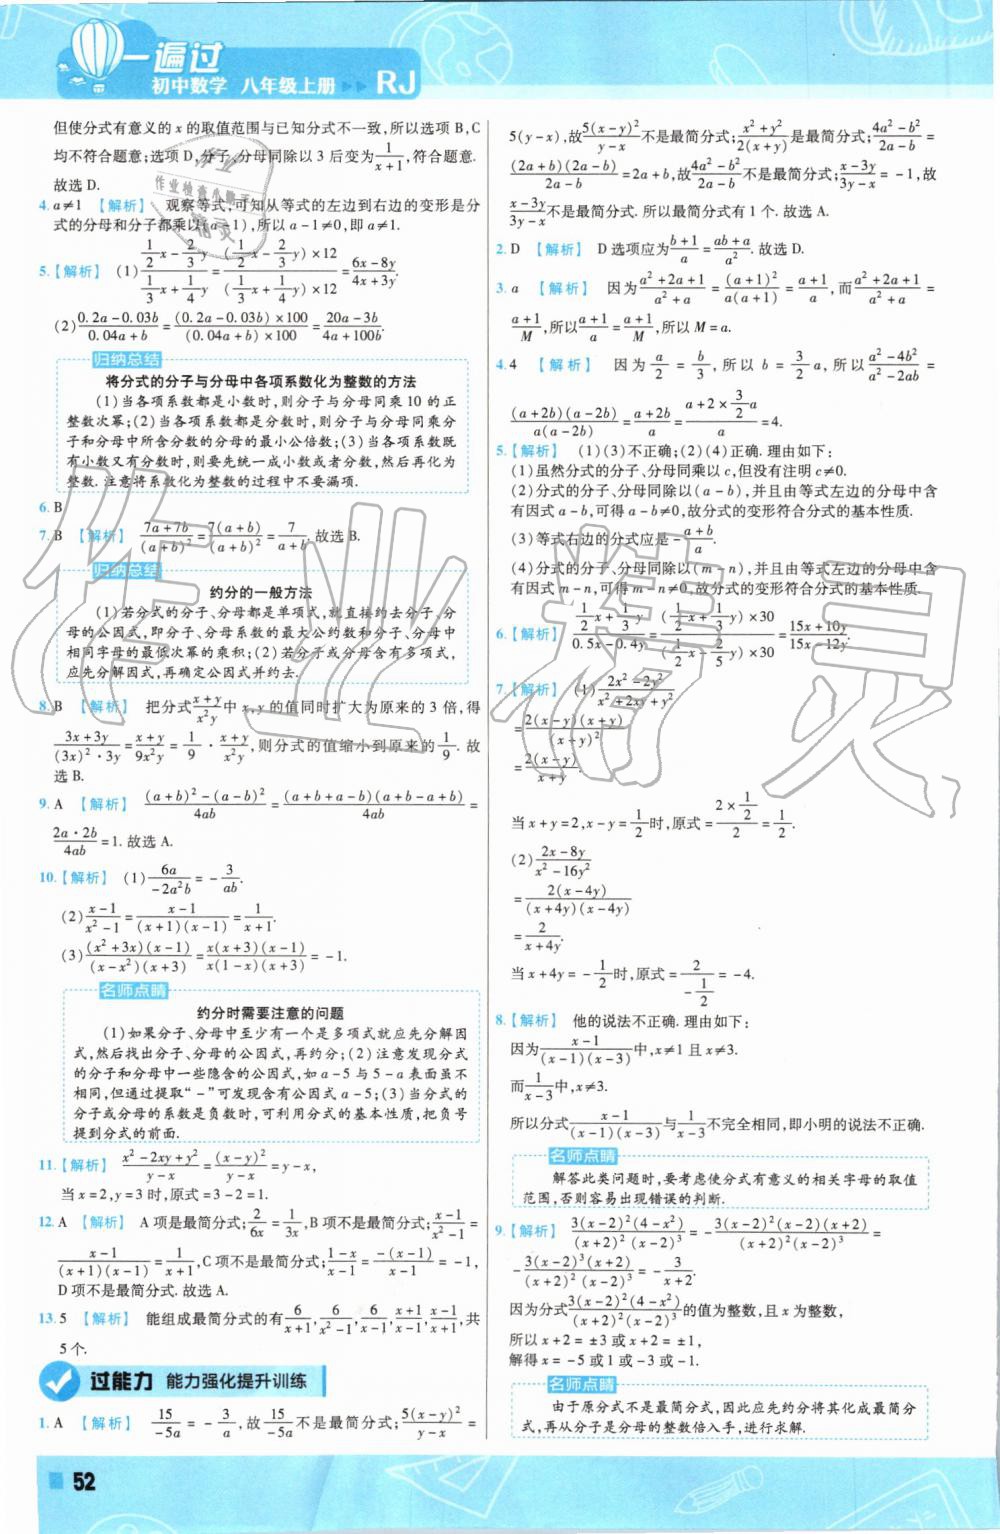 一遍过
初中数学 八年级上册 RJ
但使分式有意义的 x 的取值范围与已知分式不一致,所以选项 B,C
均不符合题意;选项 D,分子、分母同除以 3 后变为 1/(x+1),符合题意.
故选 D.
4. a≠1 【解析】 观察等式,可知从等式的左边到右边的变形是分
式的分母和分子都乘以(a-1),所以 a-1≠0,即 a≠1.
5.【解析】 (1) (1/2 x - 2/3 y)/(1/3 x + 1/4 y) = ((1/2 x - 2/3 y)×12)/((1/3 x + 1/4 y)×12) = (6x-8y)/(4x+3y).
(2) (0.2a-0.03b)/(0.04a+b) = ((0.2a-0.03b)×100)/((0.04a+b)×100) = (20a-3b)/(4a+100b).
归纳总结
将分式的分子与分母中各项系数化为整数的方法
(1)当各项系数都是小数时,则分子与分母同乘 10 的正
整数次幂;(2)当各项系数都是分数时,则分子与分母同乘分
子和分母中所含分数的分母的最小公倍数;(3)当各项系数既
有小数又有分数时,则要先统一成小数或者分数,然后再化为
整数.注意将系数化为整数的过程中不要漏项.
6. B
7. B 【解析】 (7a+7b)/(a+b)² = 7(a+b)/(a+b)² = 7/(a+b).故选 B.
归纳总结
约分的一般方法
(1)若分式的分子、分母都是单项式,就直接约去分子、分
母的公因式,即分子、分母系数的最大公约数和分子、分母中
相同字母的最低次幂的乘积;(2)若分子或分母含有多项式,
应先分解因式,再确定公因式并约去.
8. B 【解析】 把分式 (x+y)/(x²y) 中 x,y 的值同时扩大为原来的 3 倍,得
(3x+3y)/((3x)²·3y) = (x+y)/(9x²y) = 1/9 · (x+y)/(x²y),则分式的值缩小到原来的 1/9. 故
选 B.
9. A 【解析】 ((a+b)²-(a-b)²)/4ab = ((a+b+a-b)(a+b-a+b))/4ab =
(2a·2b)/4ab = 1. 故选 A.
10.【解析】 (1) 6a/(-2a²b) = -3/ab.
(2) (x-1)/(x²-1) = (x-1)/((x+1)(x-1)) = 1/(x+1).
(3) ((x²+3x)(x-1))/((x-x²)(x+3)) = (x(x+3)(x-1))/(x(1-x)(x+3)) = -1.
名师点睛
约分时需要注意的问题
(1)如果分子、分母中至少有一个是多项式就应先分解因
式,然后找出分子、分母的公因式,再约分;(2)注意发现分式
的分子和分母中一些隐含的公因式,如 a-5 与 5-a 表面虽不
相同,但通过提取“-”可发现含有公因式 a-5;(3)当分式的
分子或分母的系数是负数时,可利用分式的基本性质,把负号
提到分式的前面.
11.【解析】 (x²-2xy+y²)/(y-x) = (x-y)²/(y-x) = y-x,
当 x=2,y=3 时,原式=3-2=1.
12. A 【解析】 A 项是最简分式;2/6x = 1/3x,B 项不是最简分式;(x-1)/(x²-1) =
(x-1)/((x+1)(x-1)) = 1/(x+1),C 项不是最简分式;(1-x)/(x-1) = -(x-1)/(x-1) = -1,
D 项不是最简分式. 故选 A.
13. 5 【解析】 能组成最简分式的有 6/(x+1), 6/(x²-1), 6/(x-1), (x+1)/(x-1), (x-1)/(x+1),共
5 个.
过能力 能力强化提升训练
1. A 【解析】 15/(-5a) = -3/a,故 15/(-5a) 不是最简分式;5(x-y)²/(y-x) =
52
5(y-x),故 5(x-y)²/(y-x) 不是最简分式;(x²+y²)/(2(x+y)) 是最简分式;(4a²-b²)/(2a-b) =
((2a+b)(2a-b))/(2a-b) = 2a+b,故 (4a²-b²)/(2a-b) 不是最简分式;(x-3y)/(3y-x) = -1,故
(x-3y)/(3y-x) 不是最简分式. 所以最简分式有 1 个. 故选 A.
2. D 【解析】 D 选项应为 (b+1)/a = (ab+a)/a². 故选 D.
3. a 【解析】 因为 (a²+2a+1)/(a²+a) = (a+1)²/(a(a+1)) = (a+1)/a,而 (a²+2a+1)/(a²+a) =
(a+1)/M,所以 (a+1)/a = (a+1)/M,所以 M=a.
4. 4 【解析】 因为 a/2 = b/3,所以 b = 3/2 a,所以 (a²-4b²)/(a²-2ab) =
((a+2b)(a-2b))/(a(a-2b)) = (a+2b)/a = (a+2×3/2 a)/a = 4.
5.【解析】 (1)(3)不正确;(2)(4)正确. 理由如下:
(1)虽然分式的分子、分母同乘以 c,但没有注明 c≠0.
(2)分式的分子、分母同除以(a-b),并且由等式左边的分母中含
有因式 a-b,可得 a-b≠0,故分式的变形符合分式的基本性质.
(3)等式右边的分式应是 -(a+b)/a.
(4)分式的分子、分母同除以(m-n),并且由等式左边的分母中含
有因式 m-n,可得 m-n≠0,故分式的变形符合分式的基本性质.
6.【解析】 (1/2 x + 1/3 y)/(0.5x-0.4y) = ((1/2 x + 1/3 y)×30)/((1/2 x - 2/5 y)×30) = (15x+10y)/(15x-12y).
7.【解析】 (1) (2x²-2y²)/(x²+2xy+y²)
= (2(x-y)(x+y))/(x+y)²
= 2(x-y)/(x+y).
当 x+y=2,x-y=1/2 时,原式 = (2×1/2)/2 = 1/2.
(2) (2x-8y)/(x²-16y²)
= 2(x-4y)/((x+4y)(x-4y))
= 2/(x+4y).
当 x+4y=-1/2 时,原式 = 2/(-1/2) = -4.
8.【解析】 他的说法不正确. 理由如下:
因为 (x-1)/((x-1)(x-3)) 中,x≠1 且 x≠3.
而 1/(x-3) 中,x≠3.
所以分式 (x-1)/((x-1)(x-3)) 与 1/(x-3) 不完全相同,即小明的说法不正确.
名师点睛
解答此类问题时,要考虑使分式有意义的相关字母的取值
范围,否则容易出现错误的判断.
9.【解析】 3(x-2)²(4-x²)/((x+2)²(x-2)³) = -3(x-2)²(x-2)(x+2)/((x+2)²(x-2)³) =
-3(x-2)³(x+2)/((x+2)²(x-2)³) = -3/(x+2).
因为分式 3(x-2)²(4-x²)/((x+2)²(x-2)³) 的值为整数,且 x 为整数,
所以 x+2=±3 或 x+2=±1,
解得 x=-5 或 1 或 -3 或 -1.
名师点睛
由于原分式不是最简分式,因此应先约分将其化成最简分
式,再从分子是分母的整数倍入手,进行求解.
作业精灵
作业
作业检查小助手
精灵